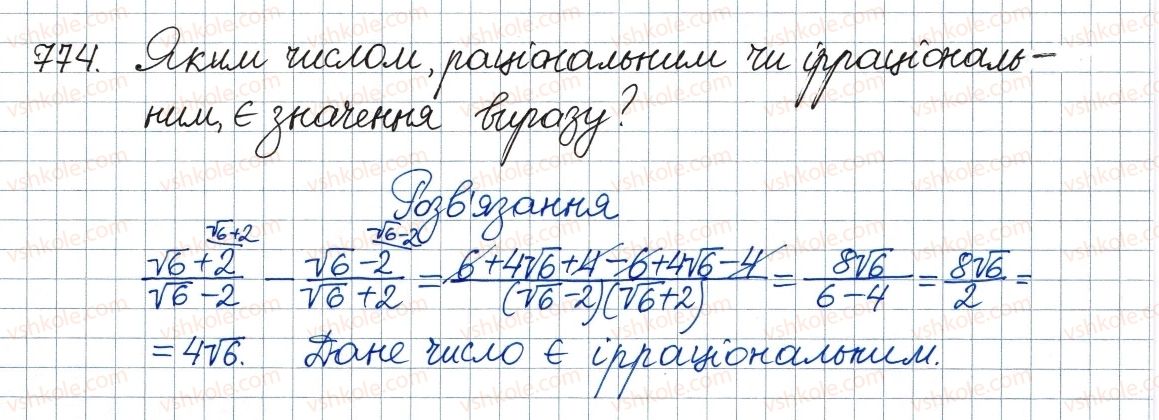 774. Яким числом, раціональним чи ірраціональ-
ним, є значення виразу?
Розв'язання
(√6+2)/(√6-2) - (√6-2)/(√6+2) = (6+4√6+4-6+4√6-4)/((√6-2)(√6+2)) = 8√6/(6-4) = 8√6/2 =
= 4√6. Дане число є ірраціональним.